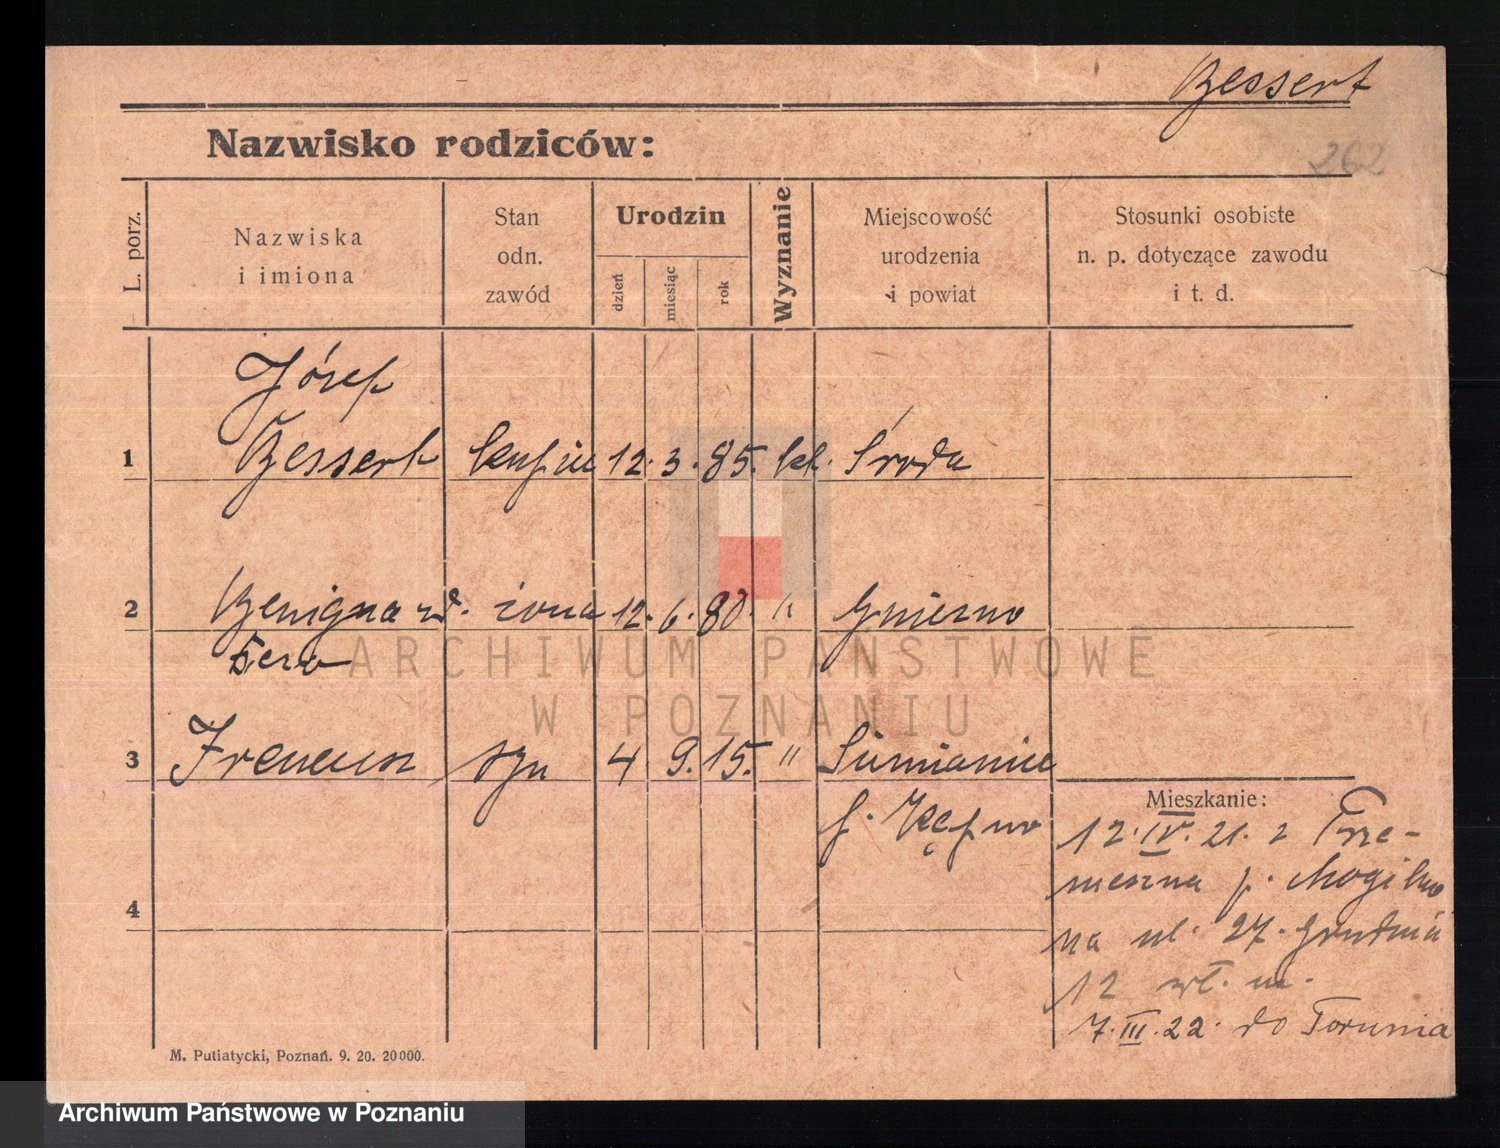 Bessert
Nazwisko rodziców:
262
L. porz.
Nazwiska
i imiona
Stan
odn.
zawód
Urodzin
dzień
miesiąc
rok
Wyznanie
Miejscowość
urodzenia
i powiat
Stosunki osobiste
n. p. dotyczące zawodu
i t. d.
Józef
1 Bessert kupiec 12. 3. 85. kt. Środa
2 Benigna zd. żona 12. 6. 80. " Gniezno
Bero
3 Ireneusz syn 4 9. 15. "
p. Kępno
Mieszkanie:
12.IV.21. z Trze-
meszna p. Mogilno
na ul. 27. Grudnia
12 wł. m.
7.III.22. do Torunia
4
M. Putiatycki, Poznań. 9. 20. 20000.
ARCHIWUM PAŃSTWOWE
W POZNANIU
Archiwum Państwowe w Poznaniu